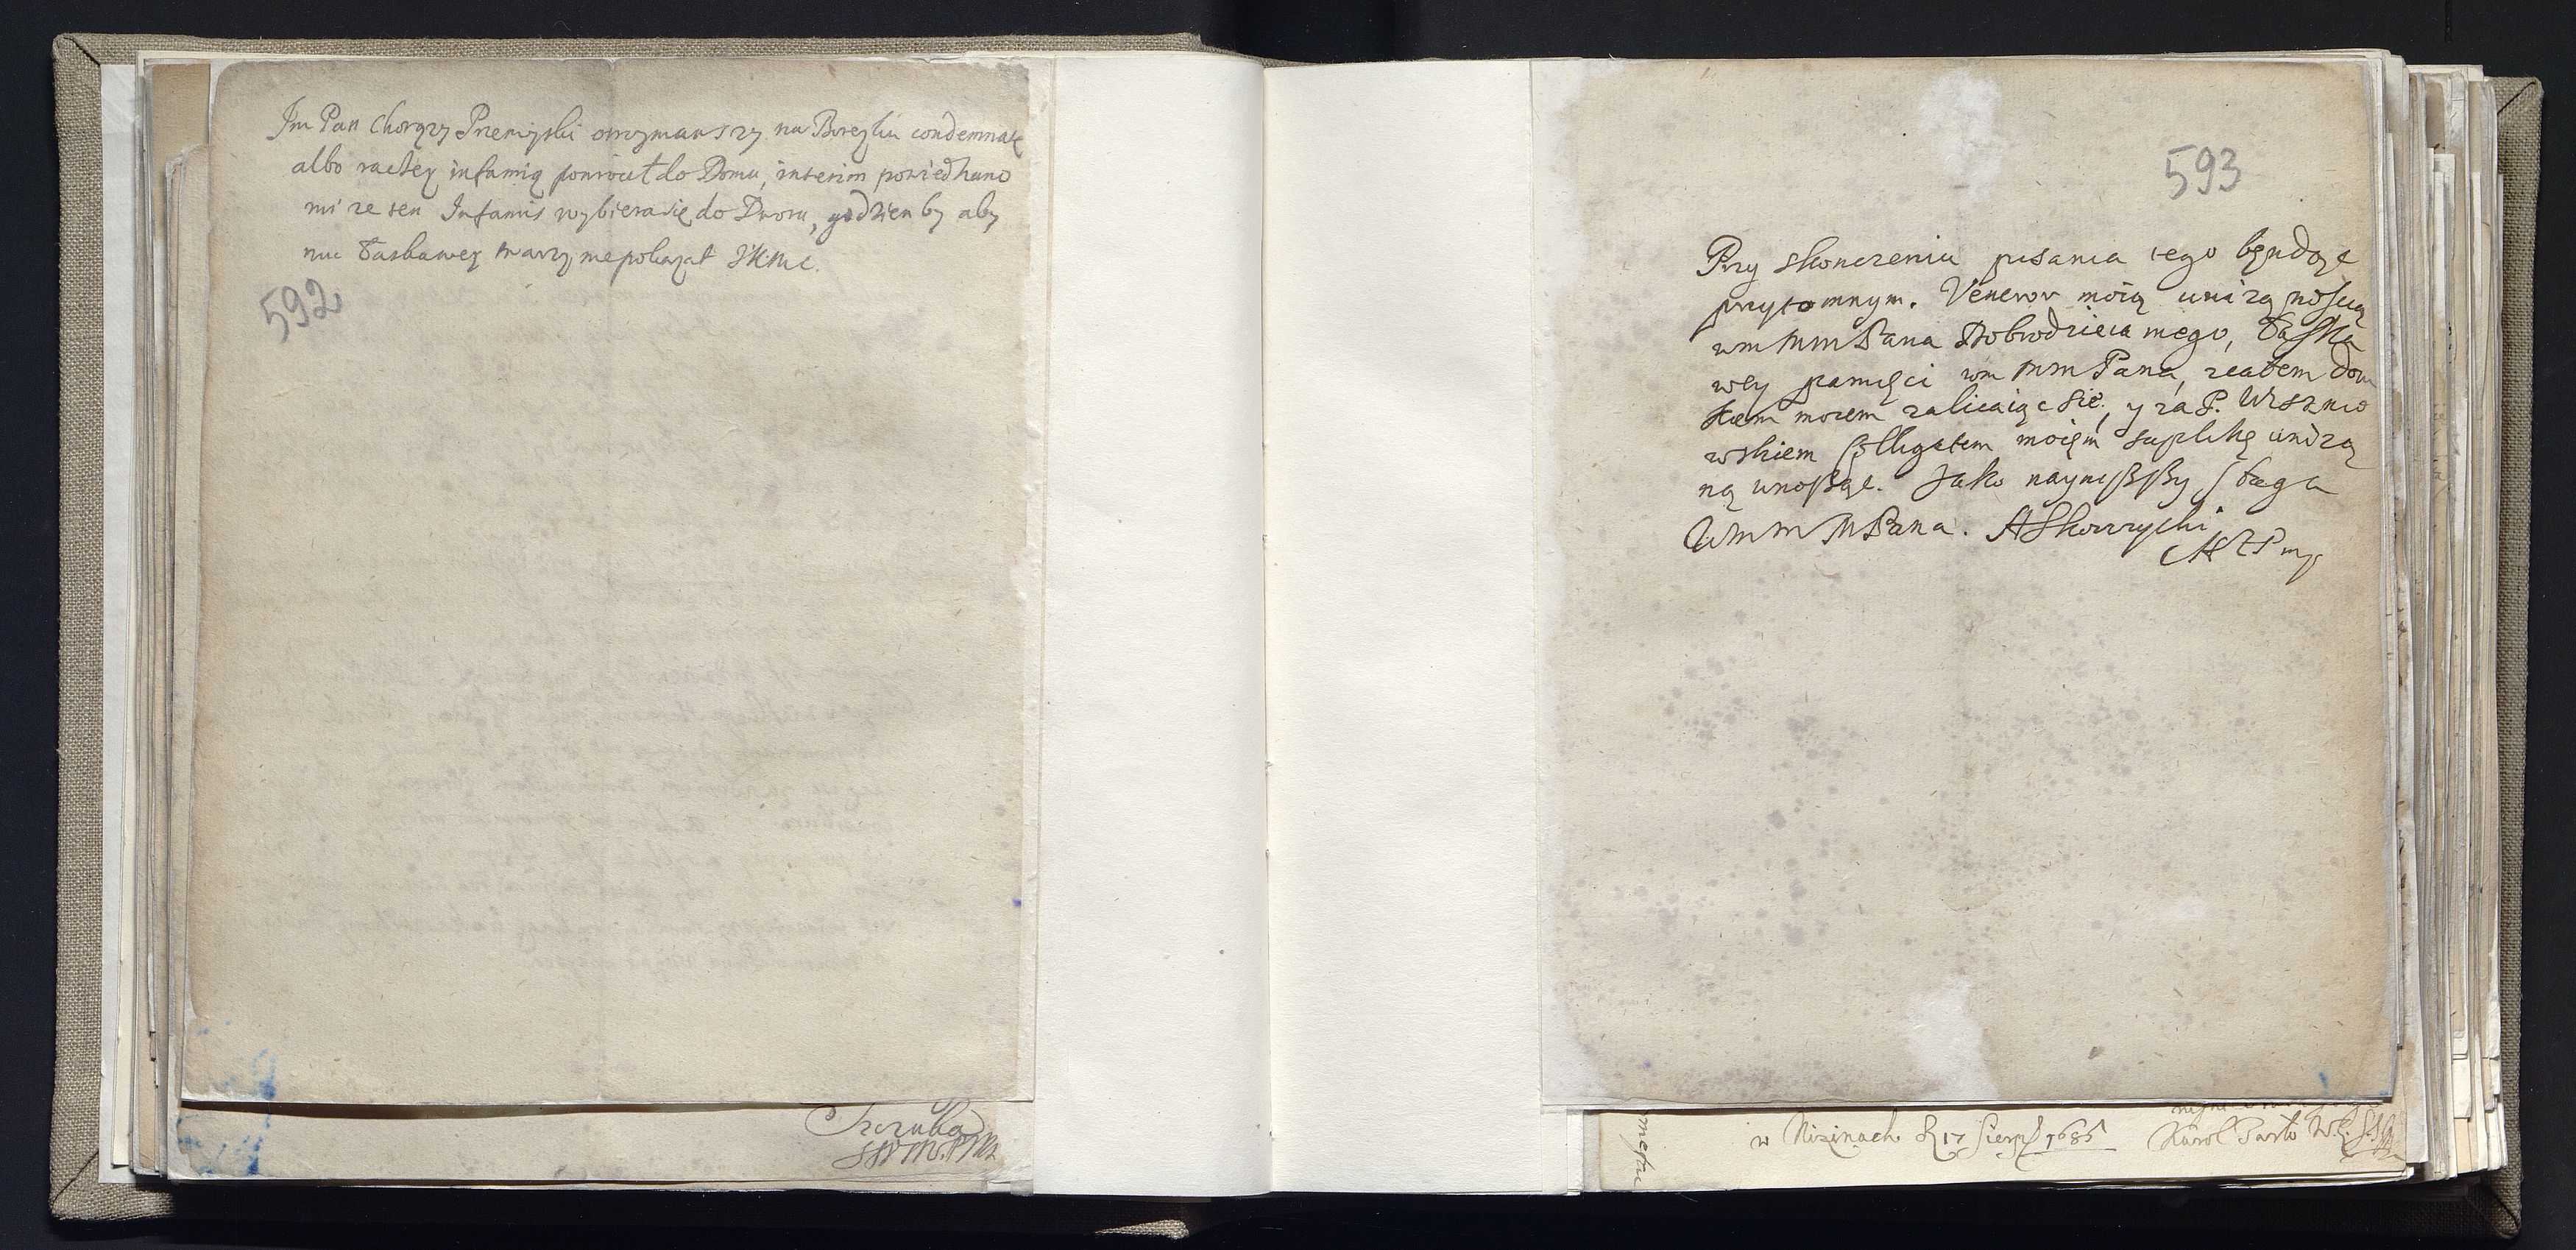 Jm Pan Chorąży Przemyski otrzymawszy na Boreyku condemnatę
albo raczey infamią powrócił do Domu, interim powiedziano
mi ze ten Infamis wybiera się do Dworu, godzien by aby
mu łaskawey twarzy nie pokazał JKMc.
592
Szczuka
593
Przy skonczeniu pisania tego będąc
przytomnym. Veneror moią unizonoscią
wm mm Pana Dobrodzieia mego, łaska
wey pamięci wm mm Pana, z całem dom
kiem moiem zalicaiąc sie, y za P. Wiszniow
wskiem Colligatem moięm suplikę unizo
ną wnoszę. Jako nayniszszy sługa
Wm m MPana. ASkorzycki
w Nizinach d 17 Sierp 1686
Karol Tarło